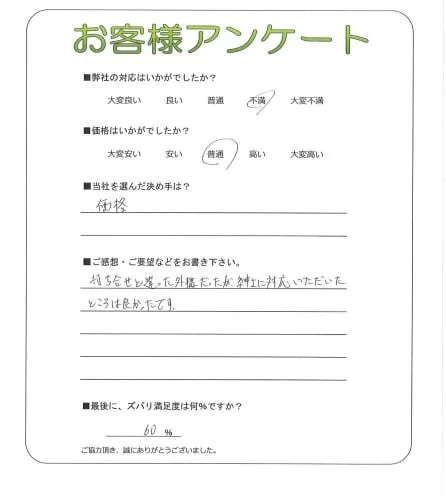 お客様アンケート
■弊社の対応はいかがでしたか？
大変良い 良い 普通 不満 大変不満
■価格はいかがでしたか？
大変安い 安い 普通 高い 大変高い
■当社を選んだ決め手は？
価格
■ご感想・ご要望などをお書き下さい。
打ち合せと違った外壁だったが紳士に対応いただいた
ところは良かったです。
■最後に、ズバリ満足度は何%ですか？
60 %
ご協力頂き、誠にありがとうございました。